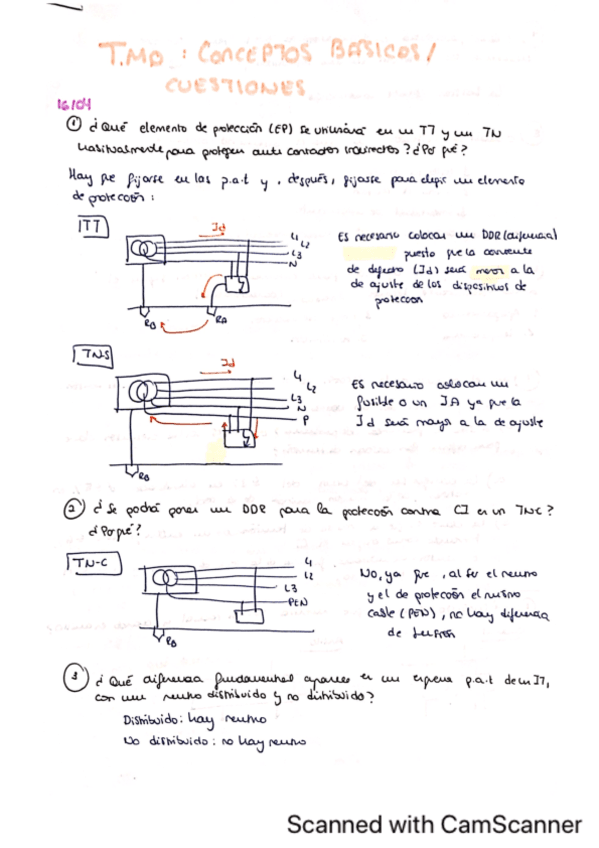 T.MD : CONCEPTOS BASICOS /
CUESTIONES
16/04
① ¿Qué elemento de protección (EP) se utilizará en un TT y un TN
habitualmente para proteger ante contactos indirectos? ¿Por qué?
Hay que fijarse en las p.a.t y, después, fijarse para elegir un elemento
de protección:
TT
Id
L1
L2
L3
N
RB
RA
Es necesario colocar un DDR (diferencial)
puesto que la corriente
de defecto (Id) será menor a la
de ajuste de los dispositivos de
protección
TNS
Id
L1
L2
L3
N
P
RB
Es necesario colocar un
fusible o un IA ya que la
Id será mayor a la de ajuste
② ¿Se podrá poner un DDR para la protección contra CI en un TNC?
¿Por qué?
TN-C
L1
L2
L3
PEN
RB
No, ya que, al ser el neutro
y el de protección el mismo
cable (PEN), no hay diferencia
de
③ ¿Qué diferencia fundamental aparece en un esquema p.a.t de un IT,
con un neutro distribuido y no distribuido?
Distribuido: hay neutro
No distribuido: no hay neutro
Scanned with CamScanner